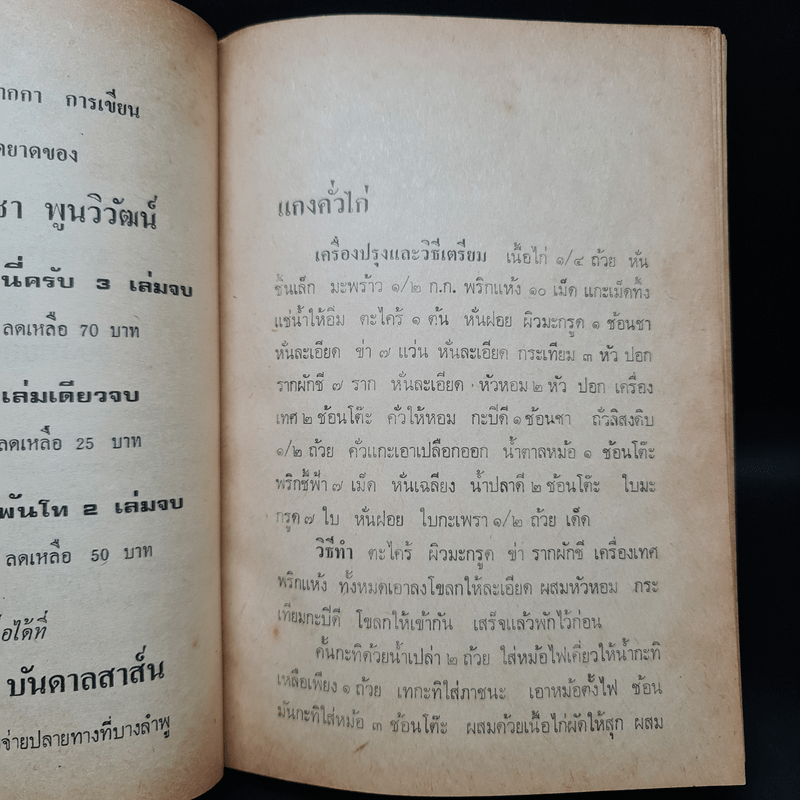 การเขียน
ของ
พูนวิวัฒน์
นี่ครับ 3 เล่มจบ
ลดเหลือ 70 บาท
เล่มเดียวจบ
ลดเหลือ 25 บาท
พันโท 2 เล่มจบ
ลดเหลือ 50 บาท
ได้ที่
บันดาลสาส์น
จ่ายปลายทางที่บางลำพู
แกงคั่วไก่
เครื่องปรุงและวิธีเตรียม เนื้อไก่ ๑/๔ ถ้วย หั่น
ชิ้นเล็ก มะพร้าว ๑/๒ ก.ก. พริกแห้ง ๑๐ เม็ด แกะเม็ดทิ้ง
แช่น้ำให้อิ่ม ตะไคร้ ๑ ต้น หั่นฝอย ผิวมะกรูด ๑ ช้อนชา
หั่นละเอียด ข่า ๗ แว่น หั่นละเอียด กระเทียม ๓ หัว ปอก
รากผักชี ๗ ราก หั่นละเอียด หัวหอม ๒ หัว ปอก เครื่อง
เทศ ๒ ช้อนโต๊ะ คั่วให้หอม กะปิดี ๑ ช้อนชา ถั่วลิสงดิบ
๑/๒ ถ้วย คั่วแกะเอาเปลือกออก น้ำตาลหม้อ ๑ ช้อนโต๊ะ
พริกชี้ฟ้า ๗ เม็ด หั่นเฉลียง น้ำปลาดี ๒ ช้อนโต๊ะ ใบมะ
กรูด ๗ ใบ หั่นฝอย ใบกะเพรา ๑/๒ ถ้วย เด็ด
วิธีทำ ตะไคร้ ผิวมะกรูด ข่า รากผักชี เครื่องเทศ
พริกแห้ง ทั้งหมดเอาลงโขลกให้ละเอียด ผสมหัวหอม กระ
เทียมกะปิดี โขลกให้เข้ากัน เสร็จแล้วพักไว้ก่อน
คั้นกะทิด้วยน้ำเปล่า ๒ ถ้วย ใส่หม้อไฟเคี่ยวให้น้ำกะทิ
เหลือเพียง ๑ ถ้วย เทกะทิใส่ภาชนะ เอาหม้อตั้งไฟ ช้อน
มันกะทิใส่หม้อ ๓ ช้อนโต๊ะ ผสมด้วยเนื้อไก่ผัดให้สุก ผสม